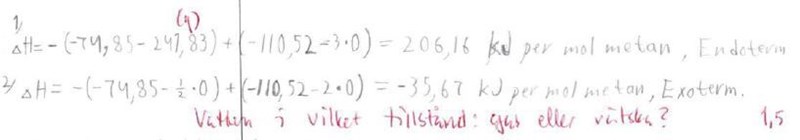 (g)
1/ ΔH = -(-74,85-241,83) + (-110,52-3·0) = 206,16 kJ per mol metan, Endoterm
2/ ΔH = -(-74,85-½·0) + (-110,52-2·0) = -35,67 kJ per mol metan, Exoterm.
Vatten i vilket tillstånd: gas eller vätska? 1,5